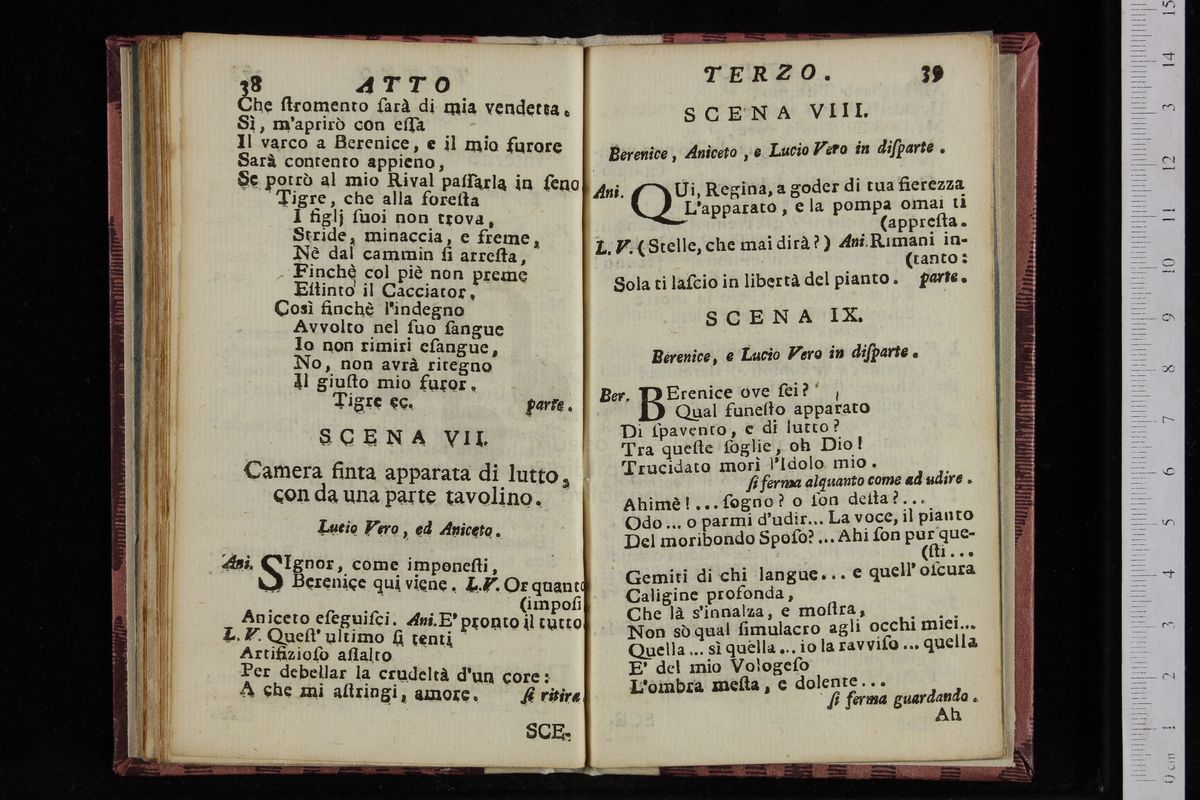 38 ATTO
Che ſtromento ſarà di mia vendetta.
Sì, m'aprirò con eſſa
Il varco a Berenice, e il mio furore
Sarà contento appieno,
Se potrò al mio Rival paſſarla in ſeno
Tigre, che alla foreſta
I figlj ſuoi non trova,
Stride, minaccia, e freme,
Nè dal cammin ſi arreſta,
Finchè col piè non preme
Eſtinto il Cacciator.
Così finchè l'indegno
Avvolto nel ſuo ſangue
Io non rimiri eſangue,
No, non avrà ritegno
Il giuſto mio furor.
Tigre ec. parte.
SCENA VII.
Camera finta apparata di lutto,
con da una parte tavolino.
Lucio Vero, ed Aniceto.
Ani. SIgnor, come imponeſti,
Berenice qui viene. L.V. Or quanto
(impoſi
Aniceto eſeguiſci. Ani. E' pronto il tutto
L. V. Queſt' ultimo ſi tenti
Artifizioſo aſſalto
Per debellar la crudeltà d'un core:
A che mi aſtringi, amore. ſi ritira.
SCE-
TERZO. 39
SCENA VIII.
Berenice, Aniceto, e Lucio Vero in diſparte.
Ani. QUi, Regina, a goder di tua fierezza
L'apparato, e la pompa omai ti
(appreſta.
L. V. (Stelle, che mai dirà?) Ani. Rimani in-
(tanto:
Sola ti laſcio in libertà del pianto. parte.
SCENA IX.
Berenice, e Lucio Vero in diſparte.
Ber. BErenice ove ſei?
Qual funeſto apparato
Di ſpavento, e di lutto?
Tra queſte ſoglie, oh Dio!
Trucidato morì l'Idolo mio.
ſi ferma alquanto come ad udire.
Ahimè! ... ſogno? o ſon deſta? ...
Odo ... o parmi d'udir... La voce, il pianto
Del moribondo Spoſo? ... Ahi ſon pur que-
(ſti ...
Gemiti di chi langue... e quell' oſcura
Caligine profonda,
Che là s'innalza, e moſtra,
Non sò qual ſimulacro agli occhi miei...
Quella ... sì quella ... io la ravviſo ... quella
E' del mio Vologeſo
L'ombra meſta, e dolente...
ſi ferma guardando.
Ah
0 cm 1 2 3 4 5 6 7 8 9 10 11 12 13 14 15